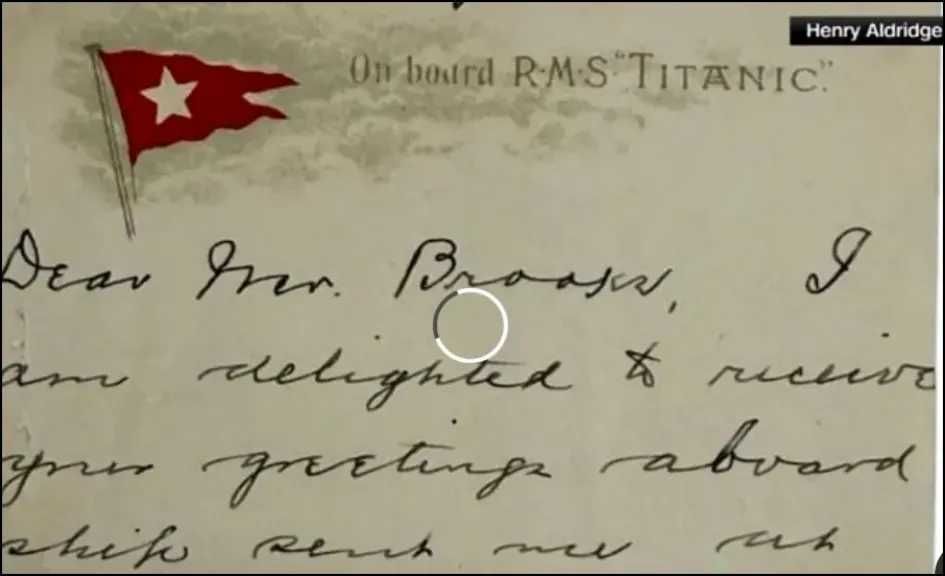 Henry Aldridge
On board R·M·S "TITANIC".
Dear Mr. Brooks, I
am delighted to receive
your greetings aboard
ship sent me at